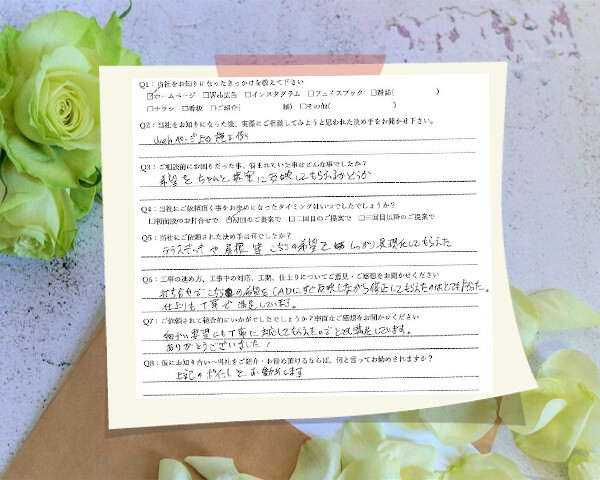 Q1：当社をお知りになったきっかけを教えて下さい
☑ホームページ □Web広告 □インスタグラム □フェイスブック □雑誌( )
□チラシ □看板 □ご紹介( 様) □その他( )
Q2：当社をお知りになった後、実際にご相談してみようと思われた決め手をお聞かせ下さい。
Webページ上の施工例
Q3：ご相談前にお困りだった事、悩まれていた事はどんな事でしたか？
希望をちゃんと提案に反映してもらえるかどうか
Q4：当社にご依頼頂く事をお決めになったタイミングはいつでしたでしょうか？
□初面談のお打合せで ☑初回のご提案で □二回目のご提案で □三回目以降のご提案で
Q5：当社にご依頼された決め手は何でしたか？
テラスデッキや屋根 皆 こちらの希望を しっかり具現化してもらえた
Q6：工事の進め方、工事中の対応、工期、仕上りについてご意見・ご感想をお聞かせください
打ち合わせで こちらの希望を CADにすぐ反映しながら修正してもらえたのはとても良かった。
仕上りも丁寧で 満足しています。
Q7：ご依頼されて総合的にいかがでしたでしょうか？率直なご感想をお聞かせください
細かい要望にも丁寧に対応してもらえたのでとても満足しています。
ありがとうございました！
Q8：仮にお知り合いへ当社をご紹介・お勧め頂けるならば、何と言ってお勧めされますか？
上記のポイントを お勧めします